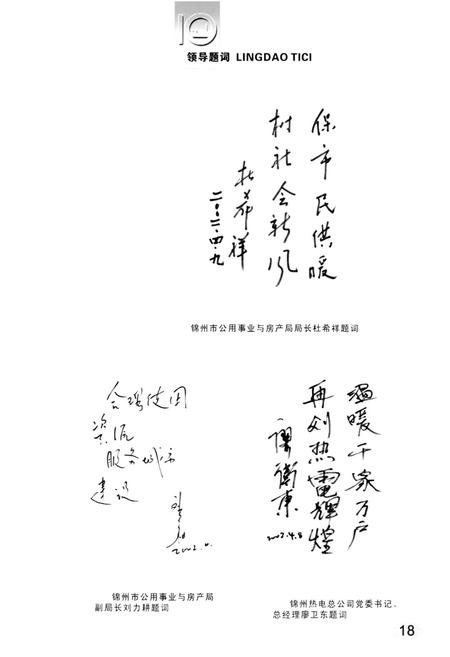 领导题词 LINGDAO TICI
保市民供暖
树社会新风
杜希祥
二〇〇二·四·九
锦州市公用事业与房产局局长杜希祥题词
合理使用
资源
服务城市
建设
2002.4.
锦州市公用事业与房产局
副局长刘力耕题词
温暖千家万户
再创热電輝煌
廖衛東
2002.4.8
锦州热电总公司党委书记、
总经理廖卫东题词
18